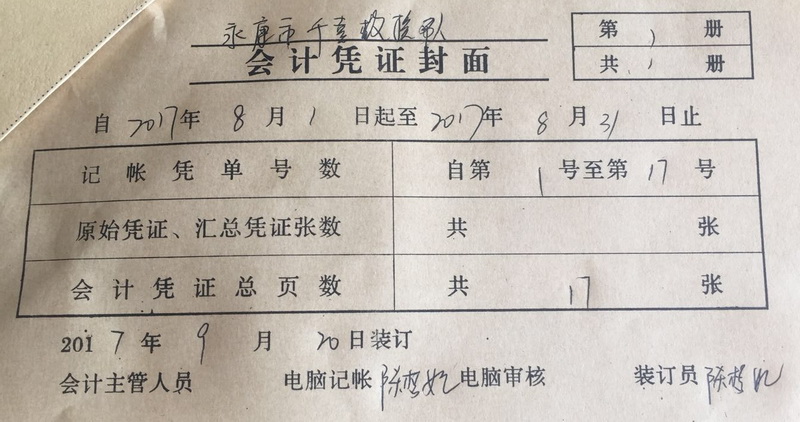 永康市千喜救援队
会计凭证封面
第 1 册
共 1 册
自 2017年 8 月 1 日起至 2017年 8 月 31 日止
记帐凭单号数 自第 1 号至第 17 号
原始凭证、汇总凭证张数 共 张
会计凭证总页数 共 17 张
2017 年 9 月 20日装订
会计主管人员 电脑记帐 陈 电脑审核 装订员 陈